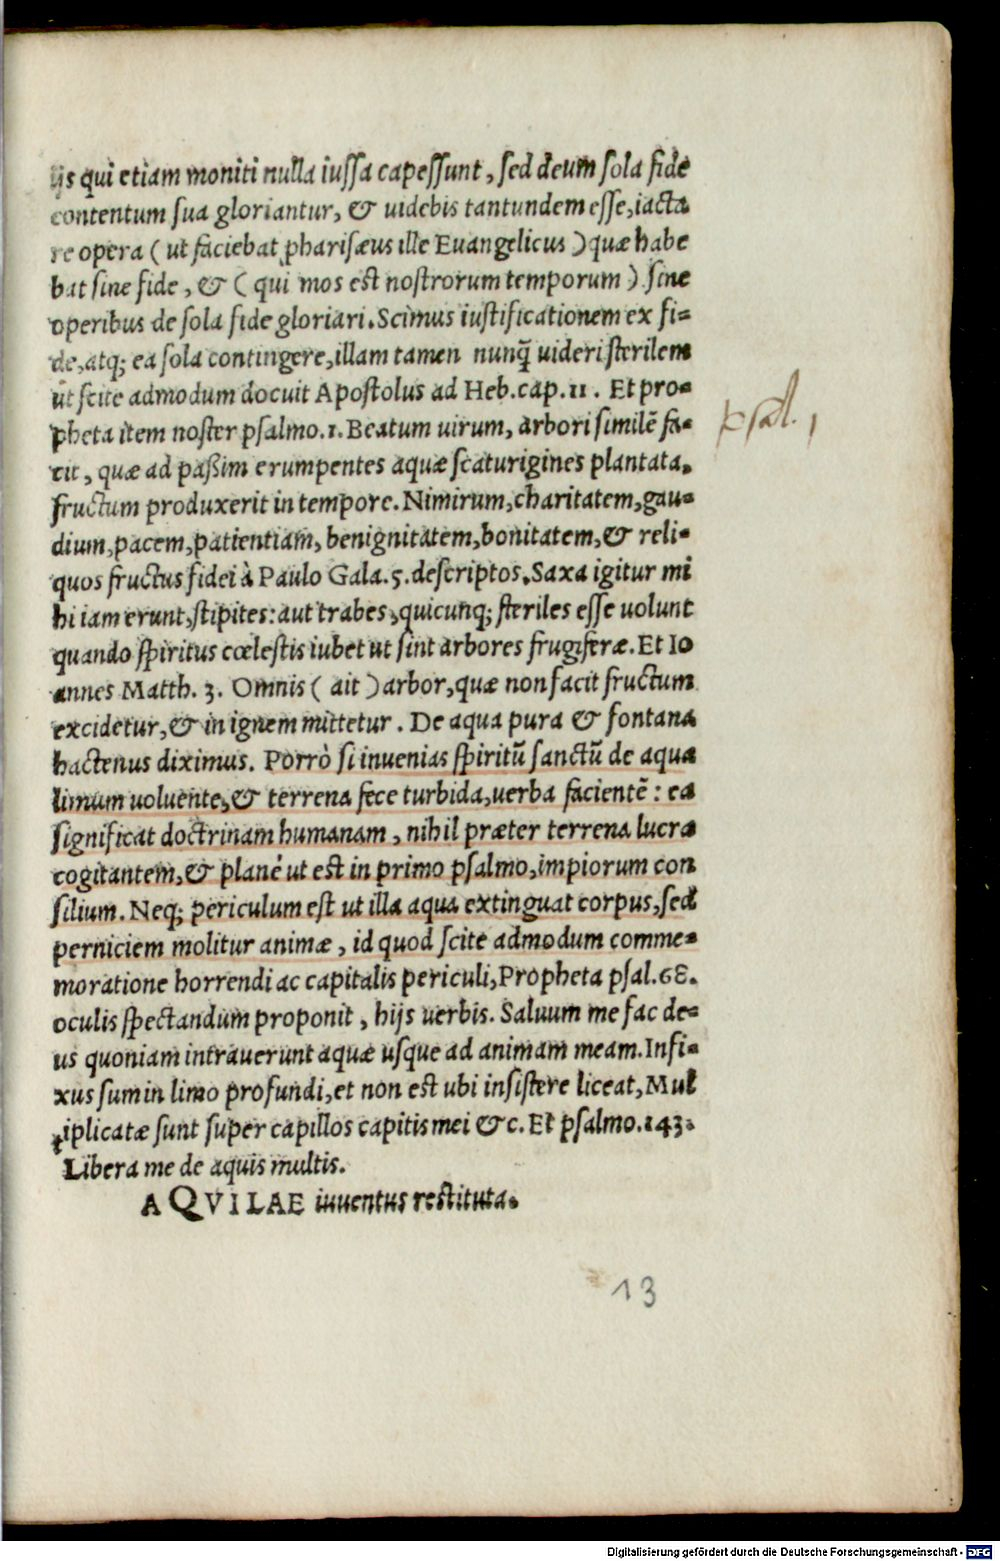 ijs qui etiam moniti nulla iussa capessunt, sed deum sola fide
contentum sua gloriantur, & uidebis tantundem esse, iacta
re opera ( ut faciebat pharisæus ille Euangelicus ) quæ habe
bat sine fide, & ( qui mos est nostrorum temporum ) sine
operibus de sola fide gloriari. Scimus iustificationem ex fi=
de, atq; ea sola contingere, illam tamen nunq̃ uideri sterilem
ut scite admodum docuit Apostolus ad Heb. cap. 11. Et pro=
pheta item noster psalmo. 1. Beatum uirum, arbori similē fa=
cit, quæ ad paßim erumpentes aquæ scaturigines plantata,
fructum produxerit in tempore. Nimirum, charitatem, gau=
dium, pacem, patientiam, benignitatem, bonitatem, & reli=
quos fructus fidei à Paulo Gala. 5. descriptos. Saxa igitur mi
hi iam erunt, stipites: aut trabes, quicunq; steriles esse uolunt
quando spiritus cœlestis iubet ut sint arbores frugiferæ. Et IO
annes Matth. 3. Omnis ( ait ) arbor, quæ non facit fructum
excidetur, & in ignem mittetur. De aqua pura & fontana
hactenus diximus. Porrò si inuenias spiritū sanctū de aqua
limum uoluente, & terrena fece turbida, uerba facientē: ea
significat doctrinam humanam, nihil præter terrena lucra
cogitantem, & planè ut est in primo psalmo, impiorum con
silium. Neq; periculum est ut illa aqua extinguat corpus, sed
perniciem molitur animæ, id quod scite admodum comme=
moratione horrendi ac capitalis periculi, Propheta psal. 68.
oculis spectandum proponit, hijs uerbis. Saluum me fac de=
us quoniam intrauerunt aquæ usque ad animam meam. Infi=
xus sum in limo profundi, et non est ubi insistere liceat, Mul
tiplicatæ sunt super capillos capitis mei &c. Et psalmo. 143.
Libera me de aquis multis.
AQVILAE iuuentus restituta.
psal. 1
13
Digitalisierung gefördert durch die Deutsche Forschungsgemeinschaft - DFG